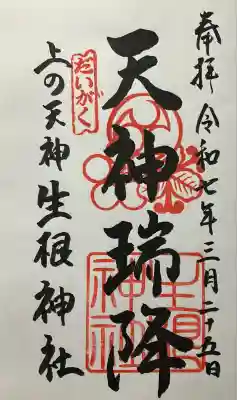 奉拝 令和七年三月二十五日
天神瑞降
だいがく
上の天神生根神社
生根神社